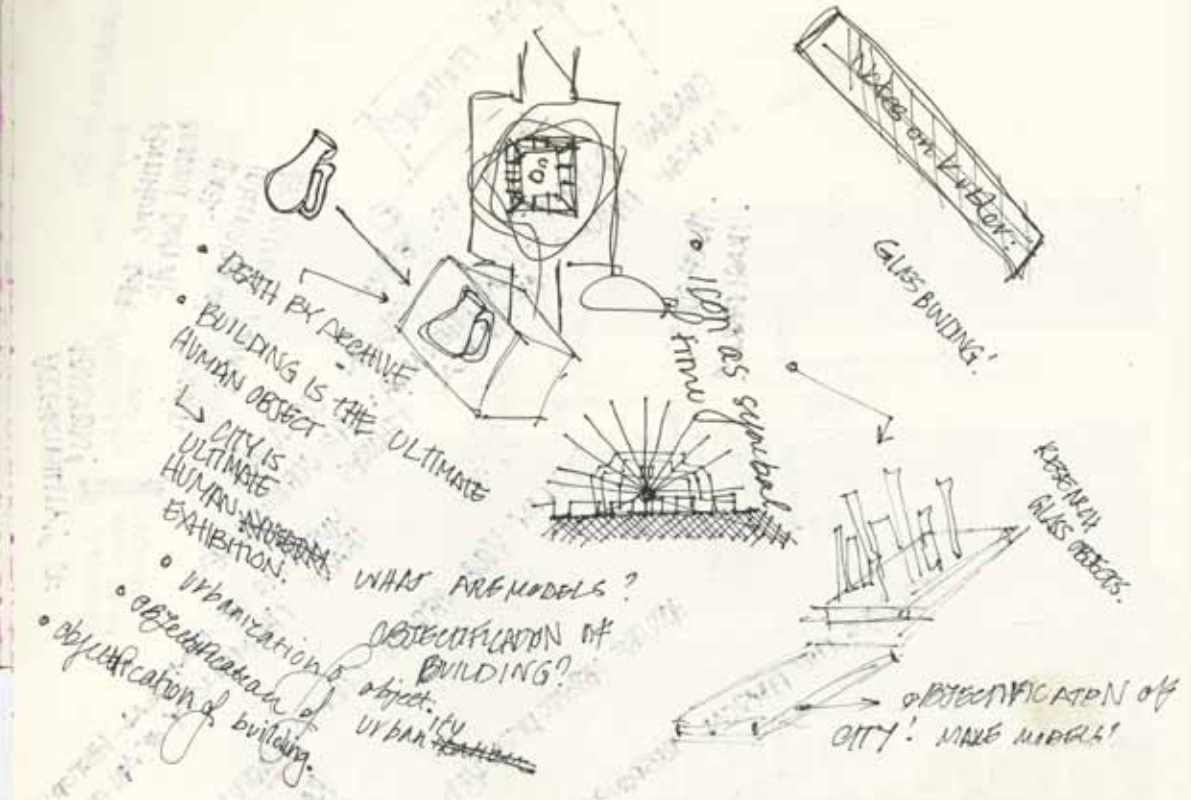 Notes on Kubler:
GLASS BINDING!
• DEATH BY ARCHIVE.
• BUILDING IS THE ULTIMATE
HUMAN OBJECT
↳ CITY IS
ULTIMATE
HUMAN
EXHIBITION.
• Icon as symbol
WHAT ARE MODELS?
OBJECTIFICATION OF
BUILDING?
• urbanization of object.
• objectification of urbanity
• objectification of building.
RESEARCH
GLASS OBJECTS.
→ OBJECTIFICATON OF
CITY! MAKE MODELS!